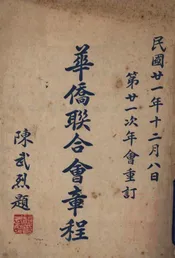 民國廿一年十二月八日
第廿一次年會重訂
華僑聯合會章程
陳武烈題